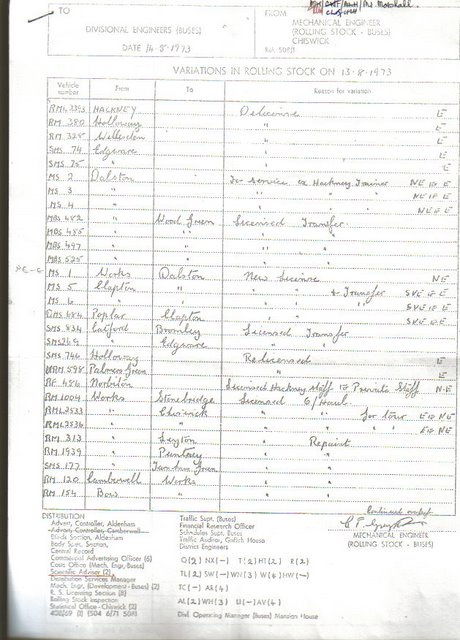 TO
DIVISIONAL ENGINEERS (BUSES)
DATE 14-8-1973
FROM
MECHANICAL ENGINEER
(ROLLING STOCK - BUSES)
CHISWICK
VARIATIONS IN ROLLING STOCK ON 13-8-1973
Vehicle number From To Reason for variation
HACKNEY Delicense E
RM 380 Holloway " E
RM 325 Willesden " E
SMS 74 Edgware " E
SMS 75 " " E
MS 2 Dalston To Service ex Hackney Trainer NE to E
MS 3 " " " NE to E
MS 4 " " " NE to E
MBS 482 " Wood Green Licensed Transfer
MBS 485 " " " "
MBS 497 " " " "
MBS 525 " " " "
MS 1 Works Dalston New License NE
MS 5 Clapton " " " & Transfer SVE to E
MS 6 " " " " " SVE to E
DMS 684 Poplar Clapton " " " SVE to E
SMS 834 Catford Bromley Licensed Transfer
SMS 269 " Edgware " "
SMS 746 Holloway Relicensed E
Palmers Green " E
RF 486 Norbiton Licensed Hackney Staff to Private Staff N-E
RM 1004 Works Stonebridge Licensed O/Haul
RML 2533 " Chiswick " " for tour E to NE
RML 2536 " " " " " " E to NE
RM 313 " Leyton " Repaint
RM 1939 " Putney " "
SMS 177 " Turnham Green " "
RM 120 Camberwell Works " "
RM 154 Bow " " "
Continued overleaf
MECHANICAL ENGINEER
(ROLLING STOCK - BUSES)
DISTRIBUTION
Advert. Controller, Aldenham
Advert. Controller, Camberwell
Body Supt. Section,
Central Record
Commercial Advertising Officer (6)
Costs Office (Mech. Engr. Buses)
Scientific Adviser (2)
Distribution Services Manager
Mech. Engr. (Development - Buses) (2)
R. S. Licensing Section (8)
Rolling Stock Inspection
Statistical Office - Chiswick (2)
Traffic Supt. (Buses)
Financial Research Officer
Schedules Supt. Buses
Traffic Auditor, Griffith House
District Engineers
Divl. Operating Manager (Buses) Mansion House